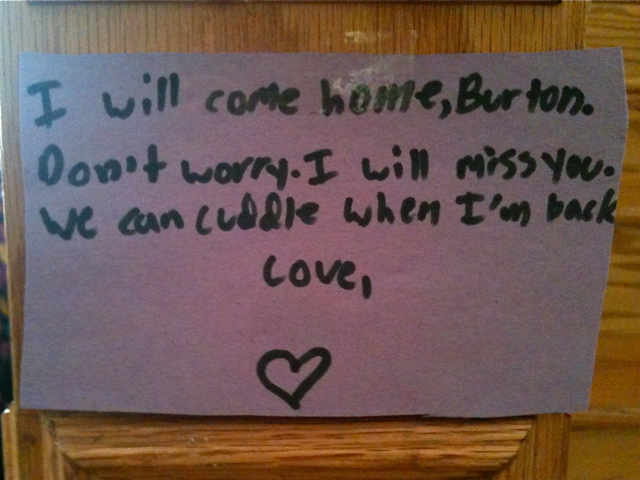 I will come home, Burton.
Don't worry. I will miss you.
We can cuddle when I'm back
Love,